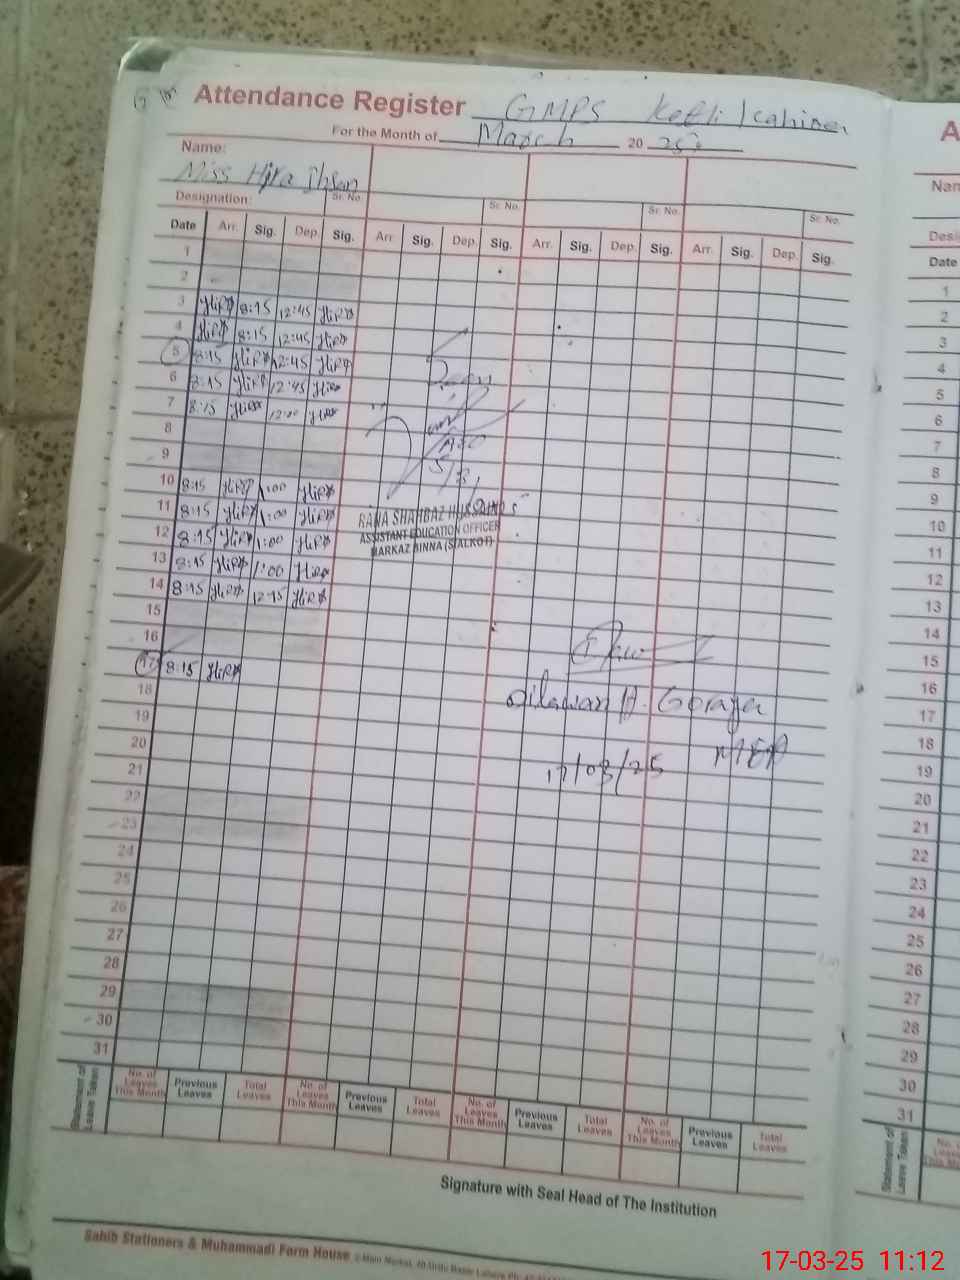 Attendance Register GMPS Kotli Kahinan
For the Month of March 2025
Name:
Miss Hira Ihsan
Designation: Sr. No. Sr. No. Sr. No. Sr. No.
Date Arr. Sig. Dep. Sig. Arr. Sig. Dep. Sig. Arr. Sig. Dep. Sig. Arr. Sig. Dep. Sig.
1
2
3 Hira 8:15 12:45 Hira
4 Hira 8:15 12:45 Hira
5 8:15 Hira 12:45 Hira
6 8:15 Hira 12:45 Hira
7 8:15 Hira 12:00 Hira
8
9
10 8:15 Hira 1:00 Hira
11 8:15 Hira 1:00 Hira
12 8:15 Hira 1:00 Hira
13 8:15 Hira 1:00 Hira
14 8:15 Hira 12:15 Hira
15
16
17 8:15 Hira
18
19
20
21
22
23
24
25
26
27
28
29
30
31
AEO
RANA SHAHBAZ HUSSAIN
ASSISTANT EDUCATION OFFICER
MARKAZ BINNA (SIALKOT)
Dilawan H. Goraya
MEA
17/03/25
Statement of Leave Taken
No. of Leaves This Month Previous Leaves Total Leaves No. of Leaves This Month Previous Leaves Total Leaves No. of Leaves This Month Previous Leaves Total Leaves No. of Leaves This Month Previous Leaves Total Leaves
Signature with Seal Head of The Institution
Sahib Stationers & Muhammadi Form House
A
Nam
Desi
Date
1
2
3
4
5
6
7
8
9
10
11
12
13
14
15
16
17
18
19
20
21
22
23
24
25
26
27
28
29
30
31
Statement of Leave Taken
17-03-25 11:12